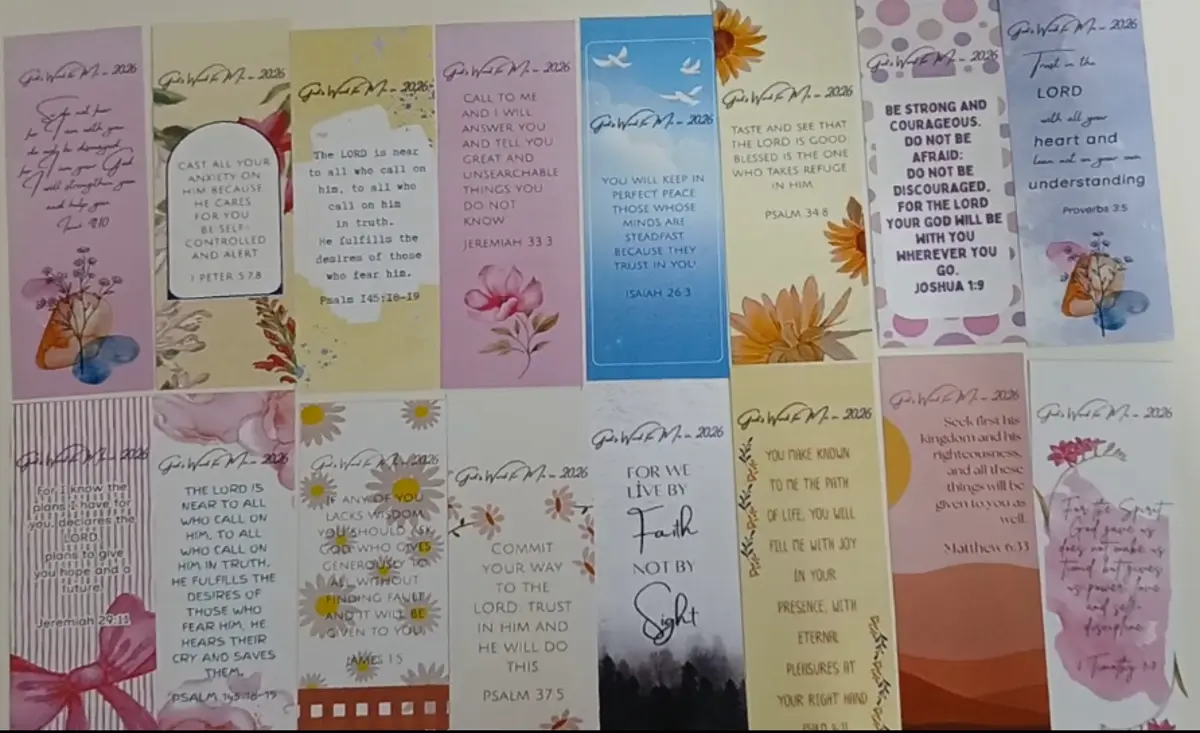 God's Word for Me - 2026
So do not fear
for I am with you
do not be dismayed
for I am your God
I will strengthen you
and help you
God's Word for Me - 2026
CAST ALL YOUR
ANXIETY ON
HIM BECAUSE
HE CARES
FOR YOU
BE SELF-
CONTROLLED
AND ALERT
1 PETER 5:7,8
God's Word for Me - 2026
The LORD is near
to all who call on
him, to all who
call on him
in truth.
He fulfills the
desires of those
who fear him.
Psalm 145:18-19
God's Word for Me - 2026
CALL TO ME
AND I WILL
ANSWER YOU
AND TELL YOU
GREAT AND
UNSEARCHABLE
THINGS YOU
DO NOT
KNOW
JEREMIAH 33:3
God's Word for Me - 2026
YOU WILL KEEP IN
PERFECT PEACE
THOSE WHOSE
MINDS ARE
STEADFAST
BECAUSE THEY
TRUST IN YOU!
ISAIAH 26:3
God's Word for Me - 2026
TASTE AND SEE THAT
THE LORD IS GOOD
BLESSED IS THE ONE
WHO TAKES REFUGE
IN HIM
PSALM 34:8
God's Word for Me - 2026
BE STRONG AND
COURAGEOUS.
DO NOT BE
AFRAID;
DO NOT BE
DISCOURAGED,
FOR THE LORD
YOUR GOD WILL BE
WITH YOU
WHEREVER YOU
GO.
JOSHUA 1:9
God's Word for Me - 2026
Trust in the
LORD
with all your
heart and
lean not on your own
understanding
Proverbs 3:5
God's Word for Me - 2026
For I know the
plans I have for
you, declares the
LORD,
plans to give
you hope and a
future.
Jeremiah 29:11
God's Word for Me - 2026
THE LORD IS
NEAR TO ALL
WHO CALL ON
HIM, TO ALL
WHO CALL ON
HIM IN TRUTH.
HE FULFILLS THE
DESIRES OF
THOSE WHO
FEAR HIM, HE
HEARS THEIR
CRY AND SAVES
THEM.
PSALM 145:18-19
God's Word for Me - 2026
IF ANY OF YOU
LACKS WISDOM
YOU SHOULD ASK
GOD WHO GIVES
GENEROUSLY TO
ALL WITHOUT
FINDING FAULT
AND IT WILL BE
GIVEN TO YOU
JAMES 1:5
God's Word for Me - 2026
COMMIT
YOUR WAY
TO THE
LORD; TRUST
IN HIM AND
HE WILL DO
THIS
PSALM 37:5
God's Word for Me - 2026
FOR WE
LIVE BY
Faith
NOT BY
Sight
God's Word for Me - 2026
YOU MAKE KNOWN
TO ME THE PATH
OF LIFE, YOU WILL
FILL ME WITH JOY
IN YOUR
PRESENCE, WITH
ETERNAL
PLEASURES AT
YOUR RIGHT HAND
God's Word for Me - 2026
Seek first his
kingdom and his
righteousness,
and all these
things will be
given to you as
well.
Matthew 6:33
God's Word for Me - 2026
For the Spirit
God gave us
does not make us
timid but gives
us power, love
and self-
discipline
Timothy